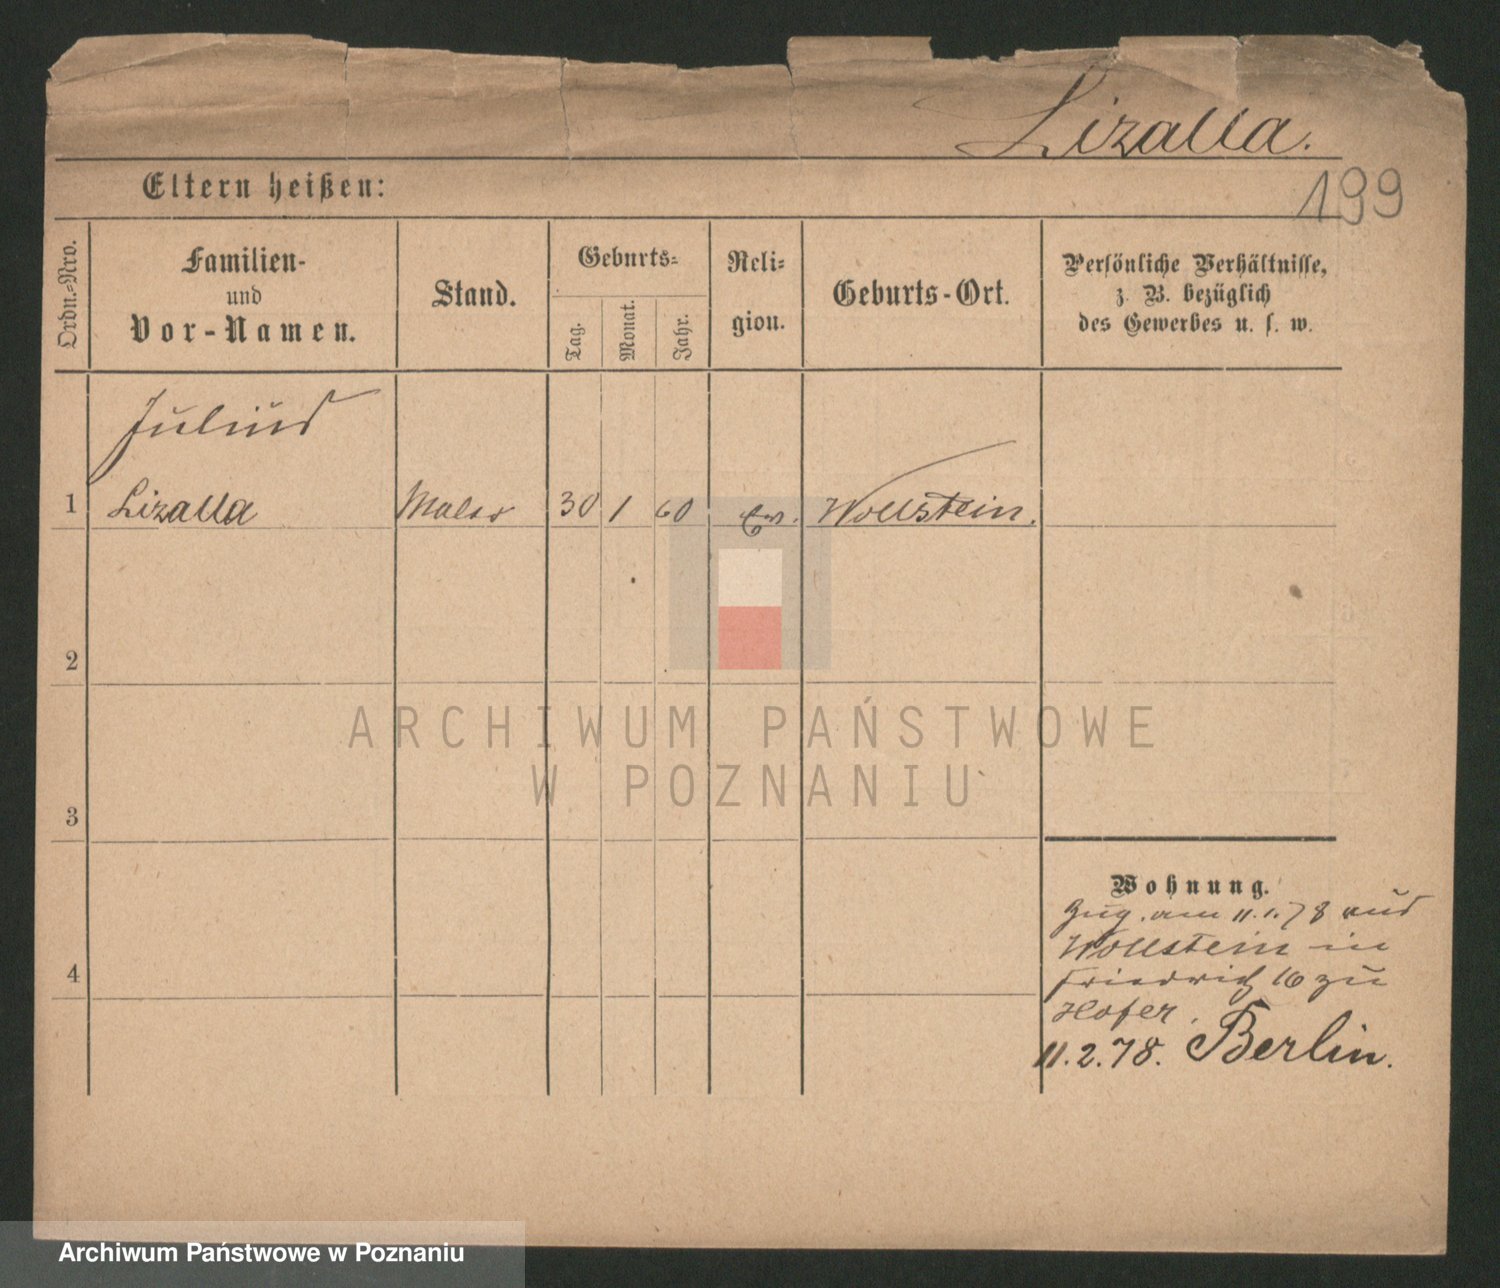 Lizalla.
199
Eltern heißen:
Ordn.-Nro.
Familien-
und
Vor-Namen.
Stand.
Geburts-
Tag.
Monat.
Jahr.
Reli-
gion.
Geburts-Ort.
Persönliche Verhältnisse,
z. B. bezüglich
des Gewerbes u. s. w.
Julius
1 Lizalla Maler 30 1 60 Ev. Wollstein.
2
3
4
Wohnung.
Zug. am 11.1.78 aus
Wollstein in
Friedrich 16 zu
Hofer.
11.2.78. Berlin.
ARCHIWUM PAŃSTWOWE
W POZNANIU
Archiwum Państwowe w Poznaniu